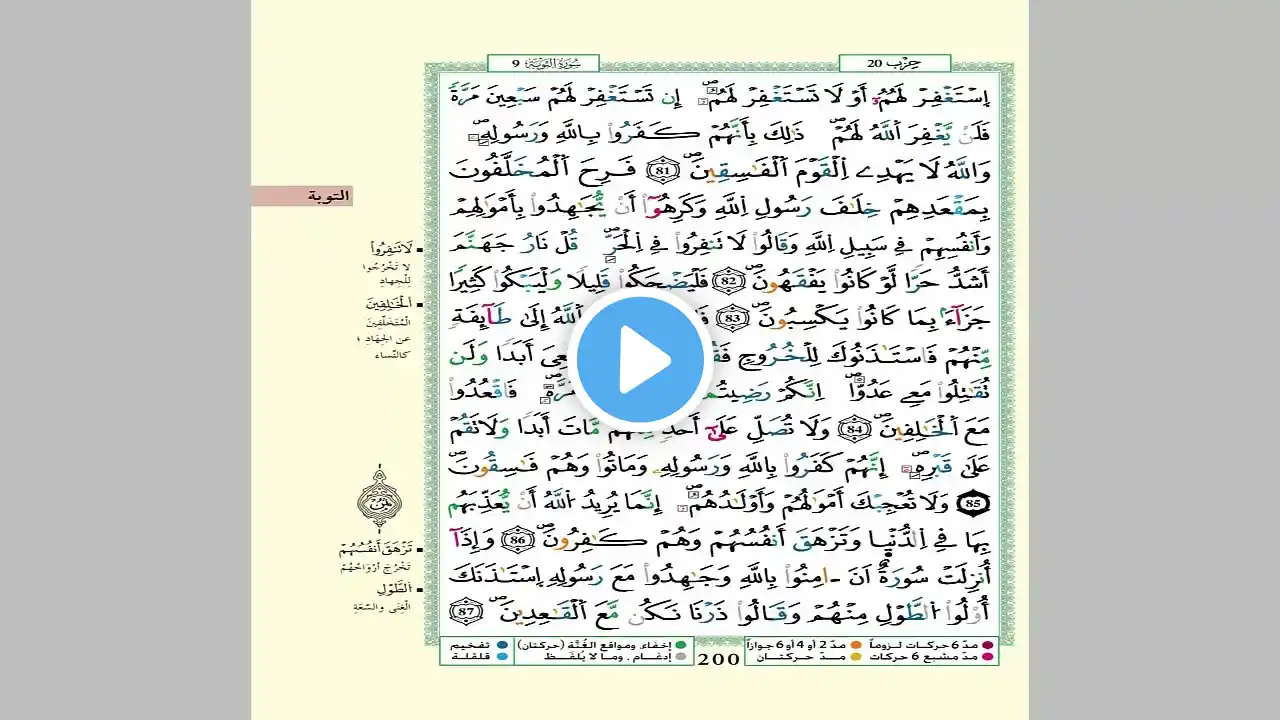 حِزْب 20
سُورَةُ التَّوْبَةِ 9
اِسْتَغْفِرْ لَهُمُۥٓ أَوْ لَا تَسْتَغْفِرْ لَهُمُۥٓۖ إِن تَسْتَغْفِرْ لَهُمْ سَبْعِينَ مَرَّةً
فَلَنْ يَّغْفِرَ اَ۬للَّهُ لَهُمْۖ ذَٰلِكَ بِأَنَّهُمْ كَفَرُواْ بِاللَّهِ وَرَسُولِهِۦۖ
وَاللَّهُ لَا يَهْدِے اِ۬لْقَوْمَ اَ۬لْفَٰسِقِينَۖ 81 فَرِحَ اَ۬لْمُخَلَّفُونَ
بِمَقْعَدِهِمْ خِلَٰفَ رَسُولِ اِ۬للَّهِ وَكَرِهُوٓاْ أَنْ يُّجَٰهِدُواْ بِأَمْوَٰلِهِمْ
وَأَنفُسِهِمْ فِے سَبِيلِ اِ۬للَّهِ وَقَالُواْ لَا تَنفِرُواْ فِے اِ۬لْحَرِّۖ قُلْ نَارُ جَهَنَّمَ
أَشَدُّ حَرّاً لَّوْ كَانُواْ يَفْقَهُونَۖ 82 فَلْيَضْحَكُواْ قَلِيلاً وَلْيَبْكُواْ كَثِيراً
جَزَآءَۢ بِمَا كَانُواْ يَكْسِبُونَۖ 83 اَ۬للَّهُ إِلَىٰ طَآئِفَةٍ
مِّنْهُمْ فَاسْتَـْٔذَنُوكَ لِلْخُرُوجِ أَبَداً وَلَن
تُقَٰتِلُواْ مَعِے عَدُوّاًۖ اِنَّكُمْ فَاقْعُدُواْ
مَعَ اَ۬لْخَٰلِفِينَۖ 84 وَلَا تُصَلِّ عَلَىٰٓ أَحَدٍ مَّاتَ أَبَداً وَلَا تَقُمْ
عَلَىٰ قَبْرِهِۦٓۖ إِنَّهُمْ كَفَرُواْ بِاللَّهِ وَرَسُولِهِۦ وَمَاتُواْ وَهُمْ فَٰسِقُونَۖ
85 وَلَا تُعْجِبْكَ أَمْوَٰلُهُمْ وَأَوْلَٰدُهُمُۥٓۖ إِنَّمَا يُرِيدُ اُ۬للَّهُ أَنْ يُّعَذِّبَهُم
بِهَا فِے اِ۬لدُّنْيَا وَتَزْهَقَ أَنفُسُهُمْ وَهُمْ كَٰفِرُونَۖ 86 وَإِذَآ
أُنزِلَتْ سُورَةٌ اَنَ اٰمِنُواْ بِاللَّهِ وَجَٰهِدُواْ مَعَ رَسُولِهِ اِ۪سْتَـْٔذَنَكَ
أُوْلُواْ اُ۬لطَّوْلِ مِنْهُمْ وَقَالُواْ ذَرْنَا نَكُن مَّعَ اَ۬لْقَٰعِدِينَۖ 87
التوبة
لَا تَنفِرُواْ
لا تَخْرُجُوا
لِلْجِهادِ
اَ۬لْخَٰلِفِينَ
الْمُتَخَلِّفِينَ
عن الجهادِ ؛
كالنّساء
ثمن
تَزْهَقَ أَنفُسُهُمْ
تَخْرُجَ أرْوَاحُهُمْ
اَ۬لطَّوْلِ
الْغِنَى والسَّعَةِ
مدّ 6 حركات لـزوماً مدّ 2 أو 4 أو 6 جوازاً
مدّ مشبع 6 حركات مـدّ حركتـان
200
إخفاء، ومواقع الغُنَّة (حركتان) تفخيم
إدغام ، وما لا يُلفَظ قلقلة